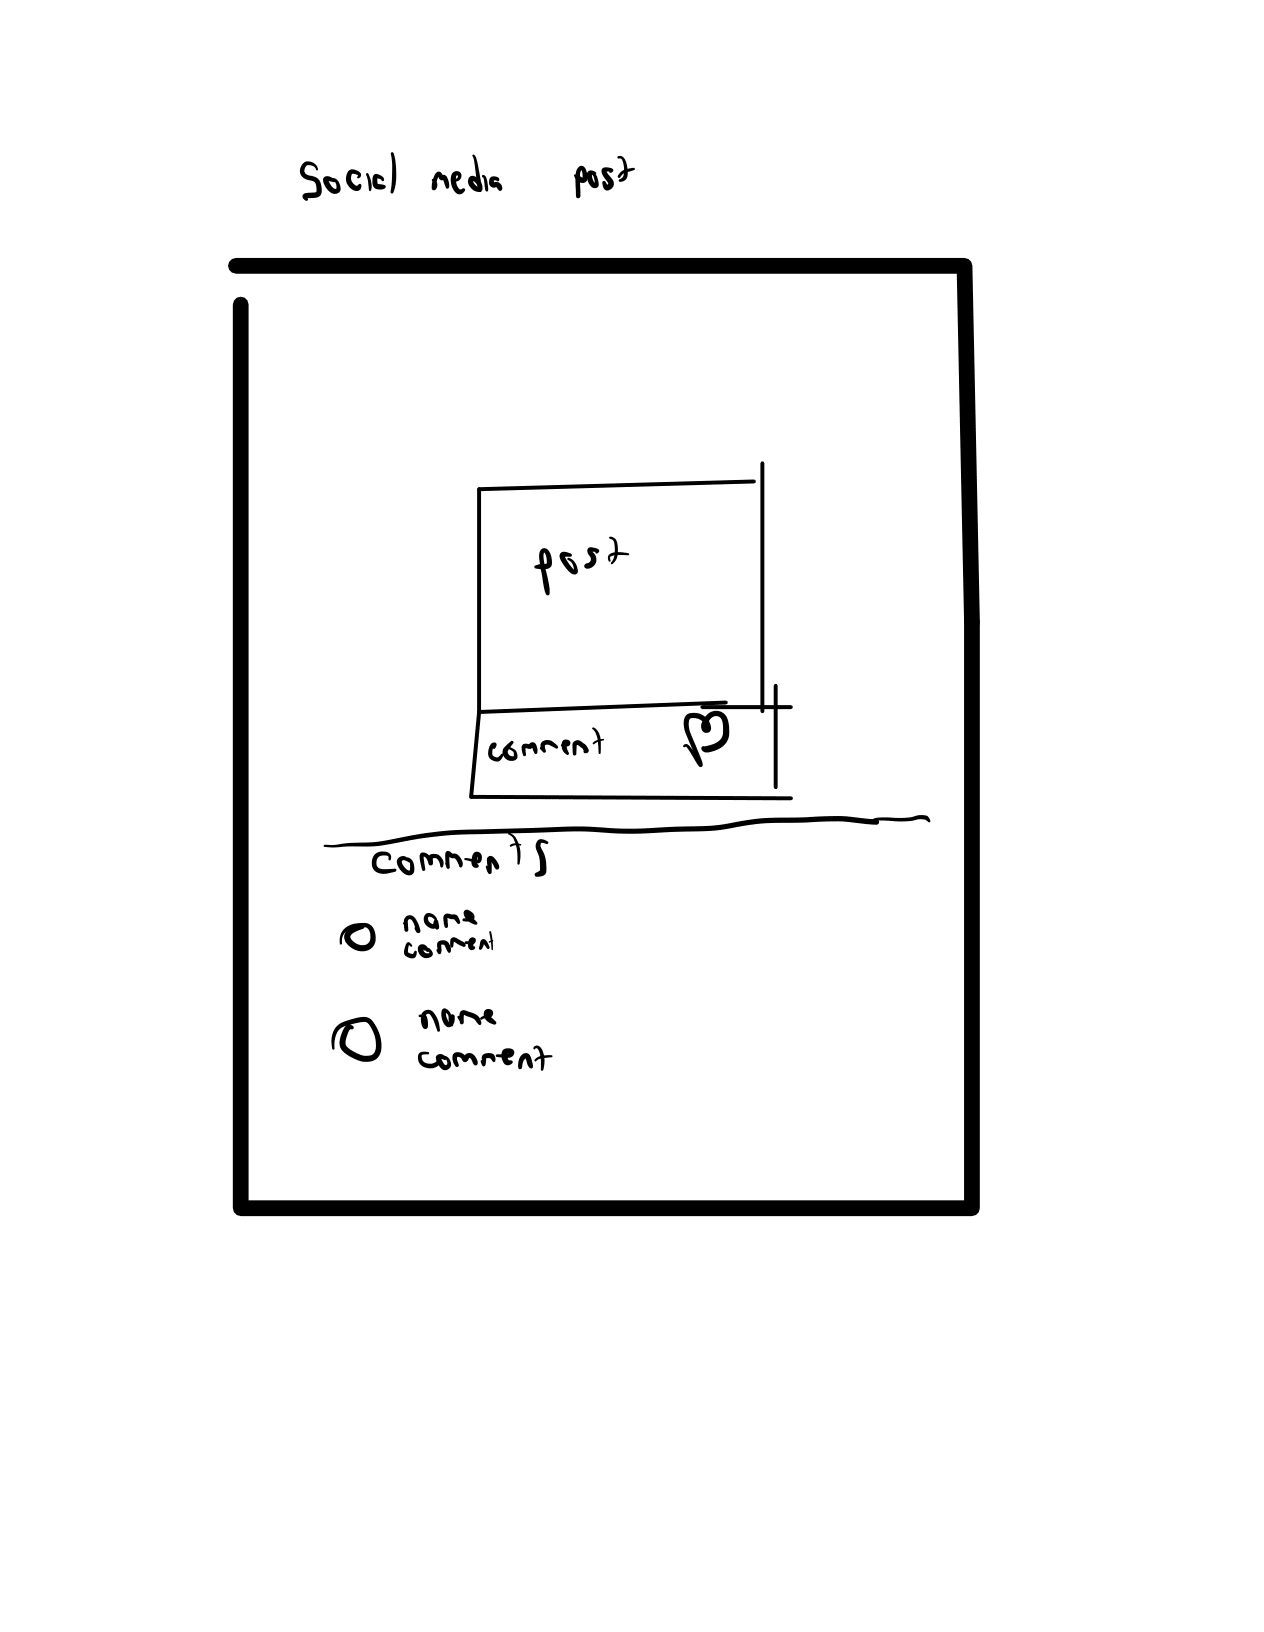 Social media post
post
comment
comments
name
comment
name
comment